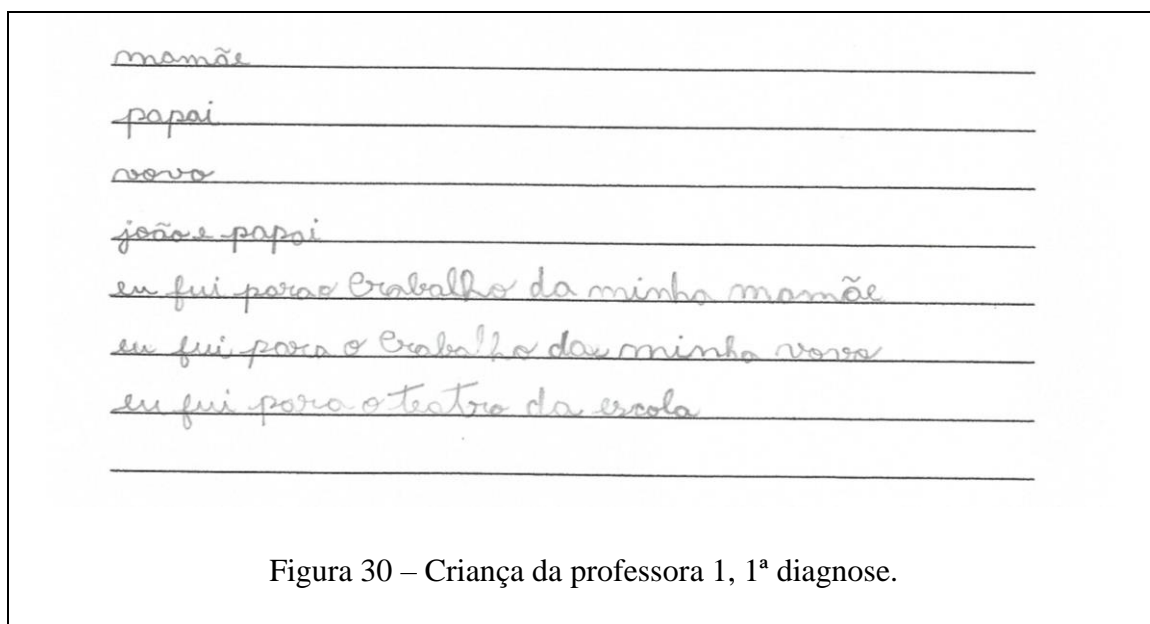 mamãe
papai
vovo
joão e papai
eu fui parao trabalho da minha mamãe
eu fui para o trabalho da minha vovo
eu fui para o teatro da escola
Figura 30 – Criança da professora 1, 1ª diagnose.